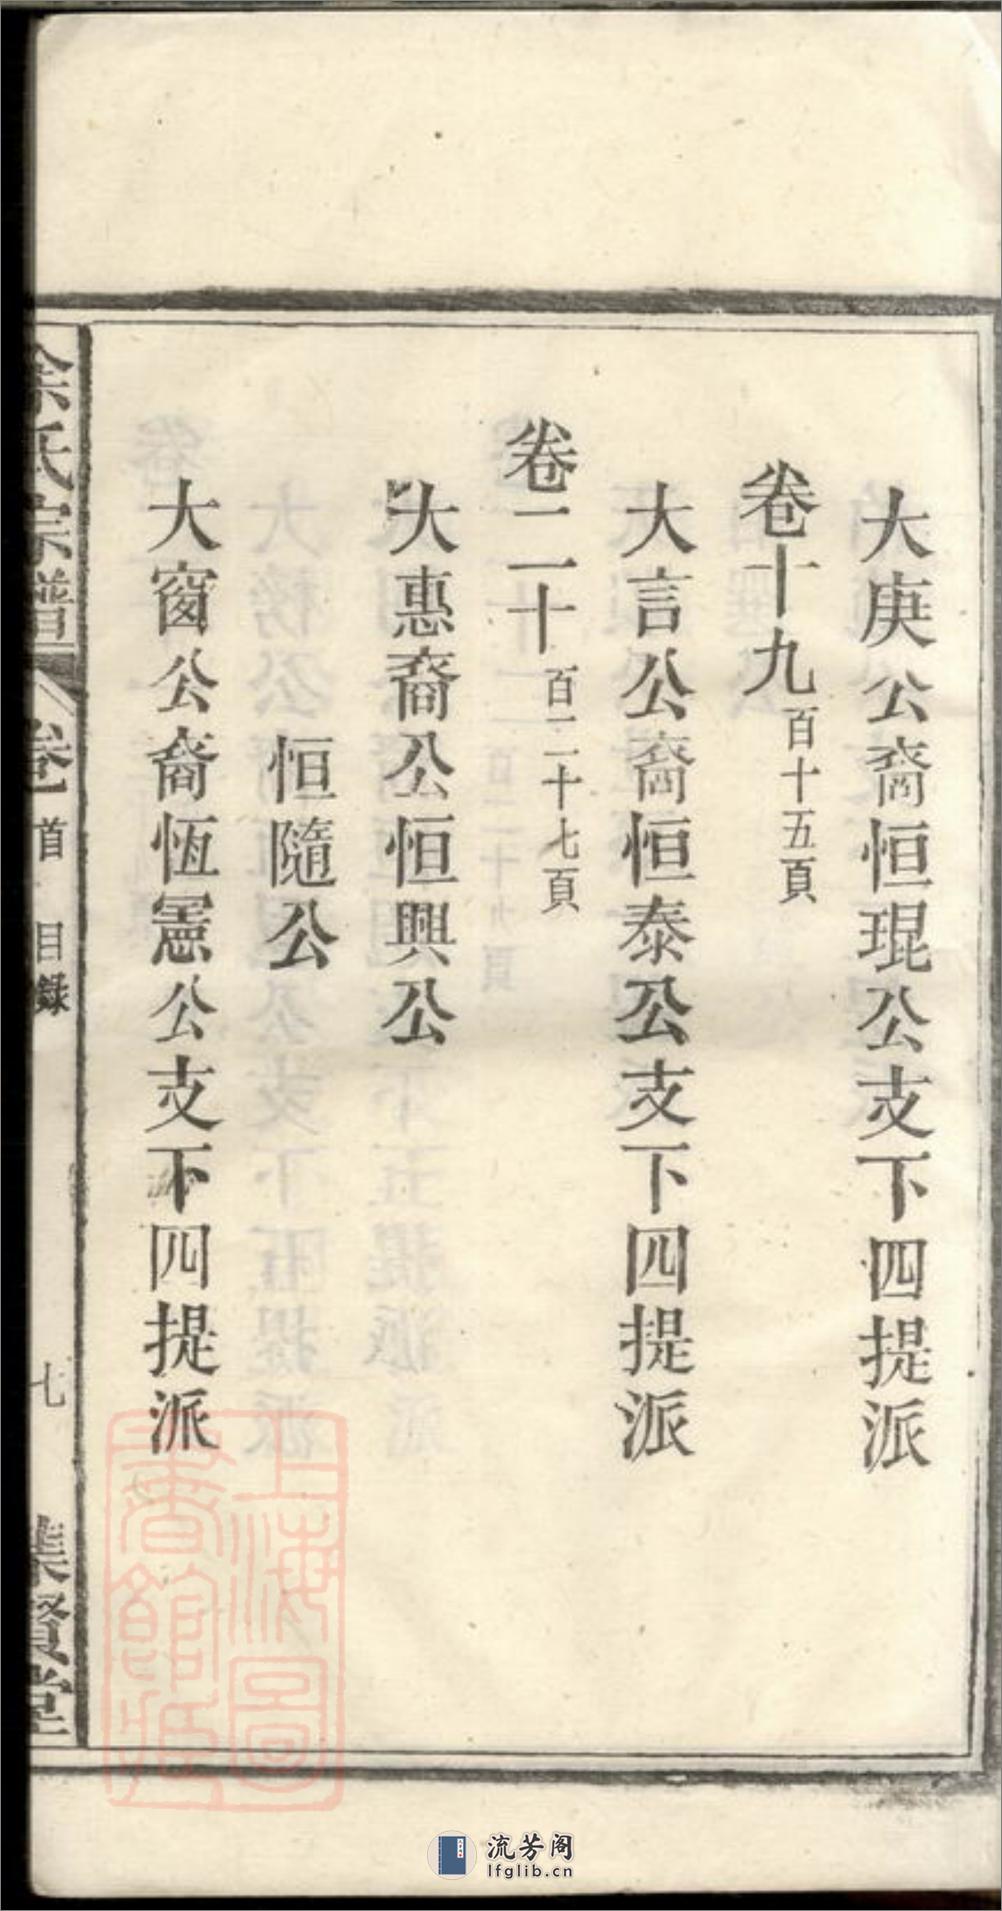 大庚公裔恒琨公支下四提派
卷十九百十五頁
大言公裔恒泰公支下四提派
卷二十百二十七頁
大惠裔公恒興公
恒隨公
大窗公裔恆憲公支下四提派
氏宗譜
卷首 目錄
七
集賢堂
上海圖書館藏
流芳阁
lfglib.cn